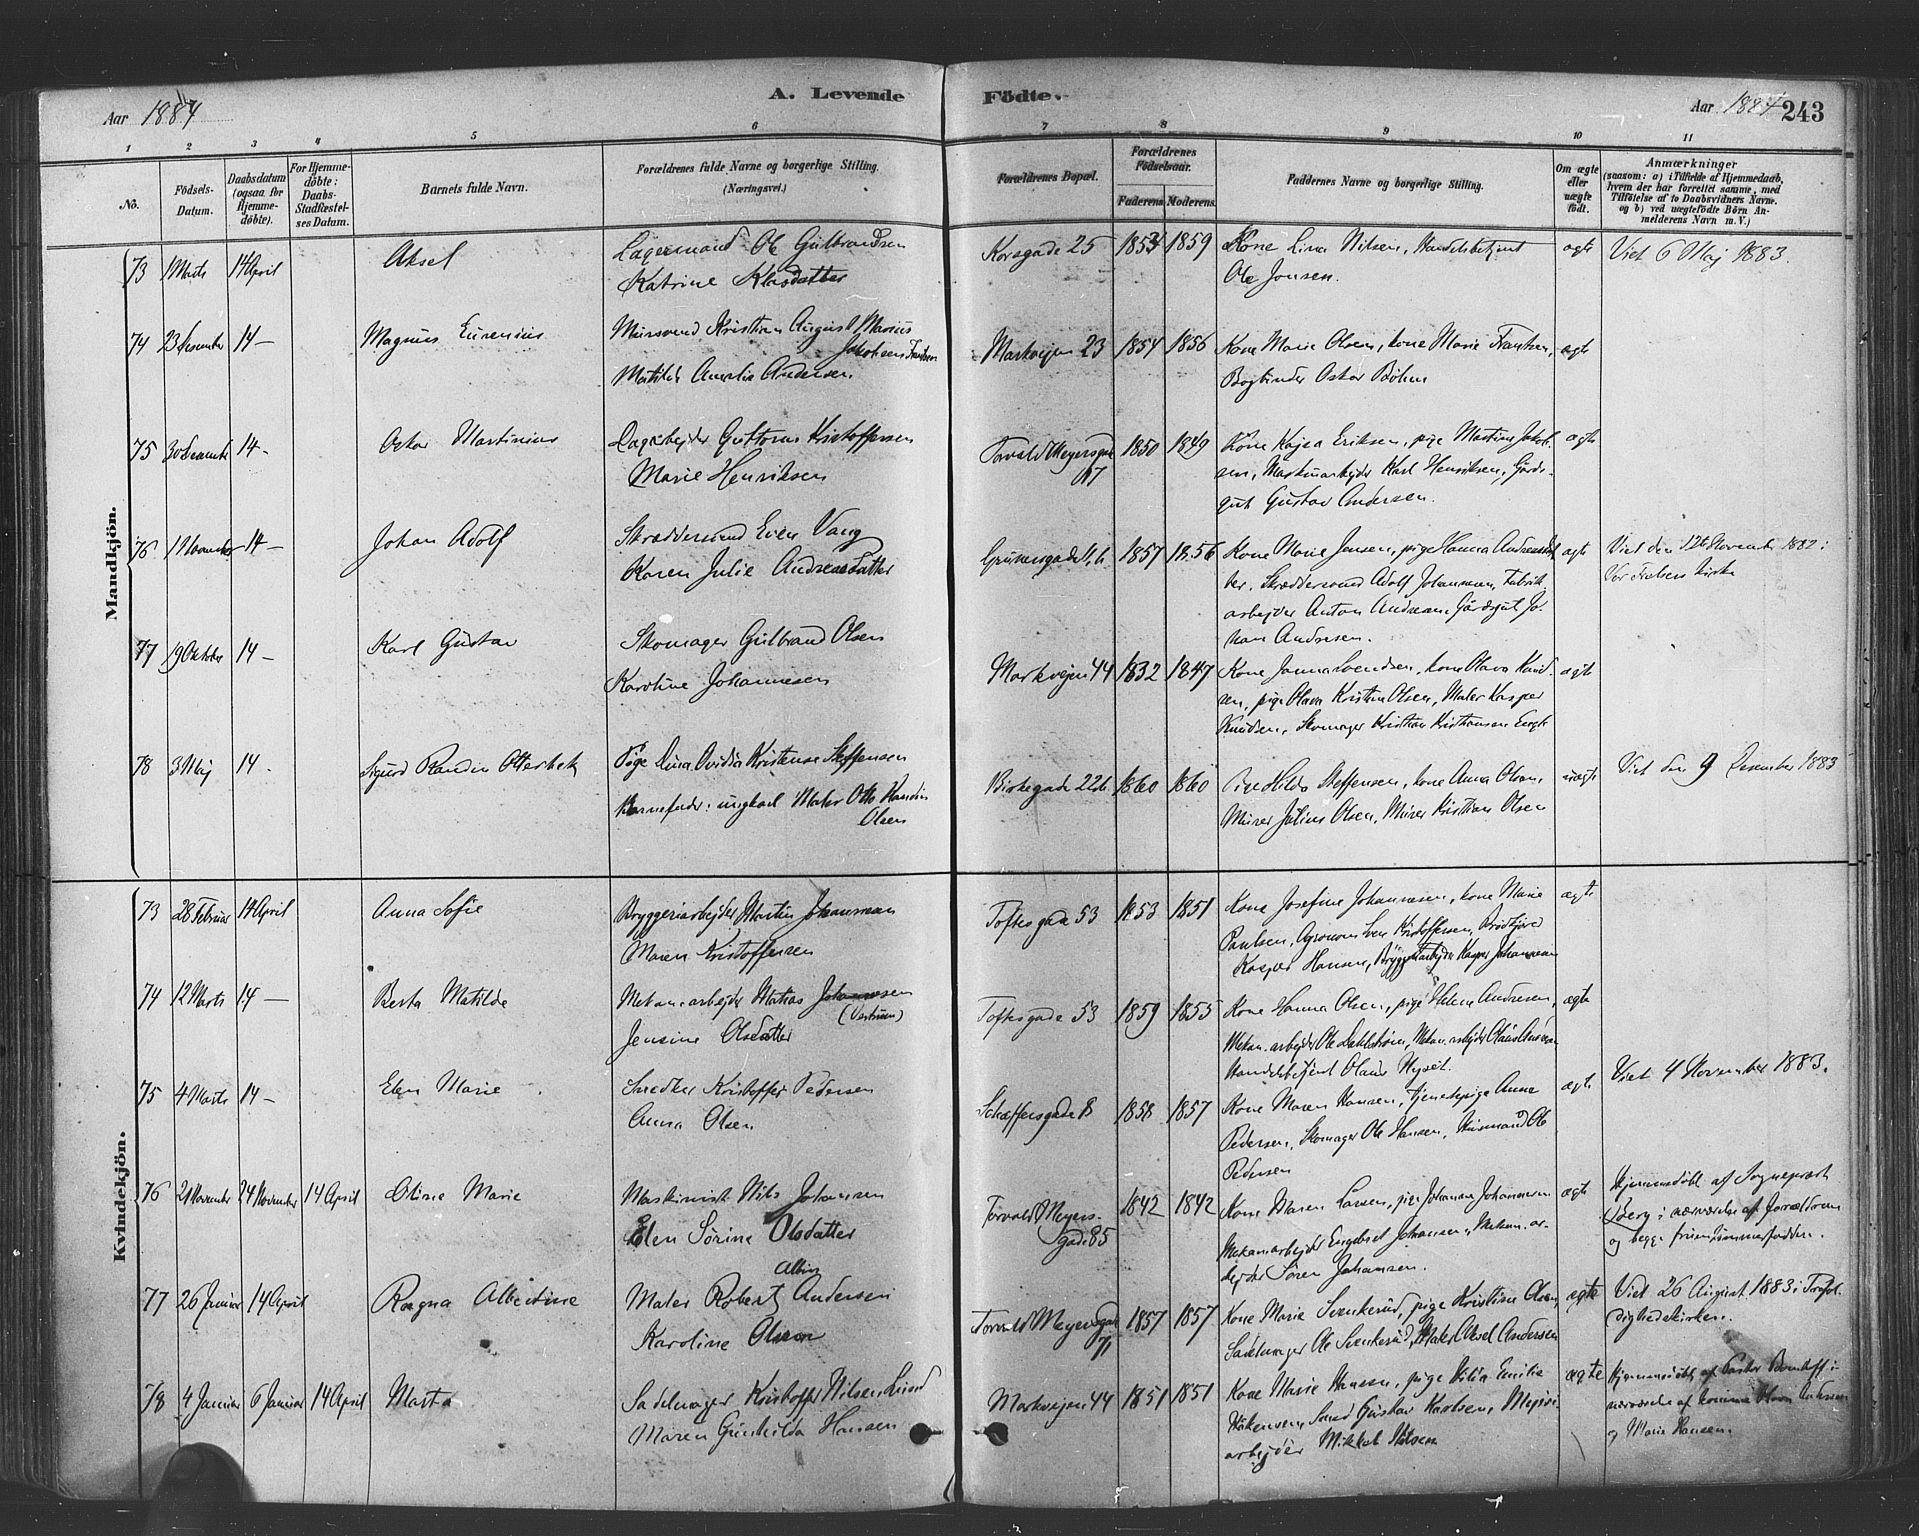 Aar 1884
A. Levende Födte.
Aar 1884 243
1 2 3 4 5 6 7 8 9 10 11
No.
Födsels-Datum.
Daabsdatum (ogsaa for Hjemmedöbte).
For Hjemmedöbte: Daabs-Stadfæstelses Datum.
Barnets fulde Navn.
Forældrenes fulde Navne og borgerlige Stilling. (Næringsvei.)
Forældrenes Bopæl.
Forældrenes Födselsaar.
Faderens Moderens
Faddernes Navne og borgerlige Stilling.
Om ægte eller uægte födt.
Anmærkninger
(saasom: a) i Tilfælde af Hjemmedaab, hvem der har forrettet samme, med Tilföielse af to Daabsvidners Navne, og b) ved uægtefödte Börn Anmelderens Navn m. V.)
Mandkjön.
73 1 Marts 14 April Aksel
Lagermand Ole Gulbrandsen
Katrine Klasdatter
Korsgade 25 1854 1859
Kone Lina Nilsen, Handelsbetjent
Ole Jonsen.
ægte Viet 6 Maj 1883.
74 23 Desember 14 – Magnus
Mursvend Kristian August Marius
Jakobsen Frantsen
Matilde Amalie Andersen
Markvejen 23 1854 1856
Kone Marie Olsen, kone Marie Frantsen,
Bogbinder Oskar Böhm
ægte
75 30 Desembr 14 - Oskar Martinius
Dagarbejder Guttorm Kristoffersen
Marie Henriksen
Torvald Meyersgade
67
1850 1849
Kone Kajsa Eriksen, pige Martine Jakob-
sen, Maskinarbejder Karl Henriksen, Gårds-
gut Gustav Andersen.
ægte
76 1 November 14 – Johan Adolf
Skræddersvend Even Vang
Karen Julie Andreasdatter
Grunersgade 1857 1856
Kone Marie Jensen, pige Hanna Andreasdat
ter, Skræddersvend Adolf Johannesen, Fabrik
arbejder Anton Andreasen, Gårdsgut Jo-
han Andresen.
ægte
Viet den 12te November 1882 i
Vor Frelsers kirke
77 19 Oktober 14 – Karl Gustav
Skomager Gulbrand Olsen
Karoline Johannesen
Markvejen 44 1832 1847
Kone Janna Svendsen, kone Olava Knud-
sen, pige Olava Kristine Olsen, Maler Kasper
Knudsen, Skomager Kristian Kristiansen
ægte
78 3 Maj 14 . Sigurd Randin Otterbek
Pige Lina Ovidia Kristense Steffensen
Barnefader: ungkarl Maler Otto Randin
Olsen
Birkegade 22 1860 1860
Pige Hilda Steffensen, kone Anna Olsen,
Murer Julius Olsen, Murer Kristian Olsen
uægte
Viet den 9 Desember 1883
Kvindekjön.
73 28 Februar 14 April Anna Sofie
Bryggeriarbejder Martin Johannesen
Maren Kristoffersen
Toftesgade 53 1853 1851
Kone Josefine Johannesen, kone Marie
Paulsen, Agronom Even Kristoffersen, Brödkjörer
Kasper Hansen, Bryggeriarbejder Kasper Johannesen
ægte
74 12 Marts 14 – Berta Matilde
Mekan. arbejder Matias Johannesen
Jensine Olsdatter
Toftesgade 53 1859 1855
Kone Hanna Olsen, pige Helene Andresen,
Mekan. arbejder Ole Dahlström, Mekan. arbejder
Handelsbetjent Olaus Hyset.
ægte
75 4 Marts 14 – Elen Marie
Snedker Kristoffer Pedersen
Anna Olsen
Schæffersgade 8 1858 1857
Kone Maren Hansen, tjenestepige Anne
Pedersen, Skomager Ole Hansen, Husmand Ole
Pedersen
ægte
Viet 4 November 1883.
76 21 November 24 November 14 April Oline Marie
Maskinist Nils Johansen
Elen Sörine Olsdatter
Torvald Meyers-
gade 85
1842 1842
Kone Maren Larsen, pige Johanne Johannesen
Mekan arbejder Engebret Johansen, Mekan. ar-
bejder Sören Johansen.
ægte
Hjemmedöbt af Sogneprest
Berg i nærværelse af forældrene
og begge fruentimmerfaddere.
77 26 Januar 14 April Ragna Albertine
Albin
Maler Robert Andersen
Karoline Olsen
Torvald Meyersgade
71
1857 1857
Kone Marie Svenkerud, pige Kristine Olsen,
Sadelmager Ole Svenkerud, Maler Aksel Andersen
ægte
Viet 26 August 1883 i Trefol-
dighedskirken.
78 4 Januar 6 Januar 14 April Marta
Sadelmager Kristoffer Nilsen Lund
Maren Gunhilda Hansen
Markvejen 44 1851 1851
Kone Marie Hansen, pige Hilda Emilie
Håkensen, Smed Gustav Karlsen,
arbejder Mikkel Nilsen
ægte
Hjemmedöbt af Pastor
nærværelse af kone
og Marie Hansen.